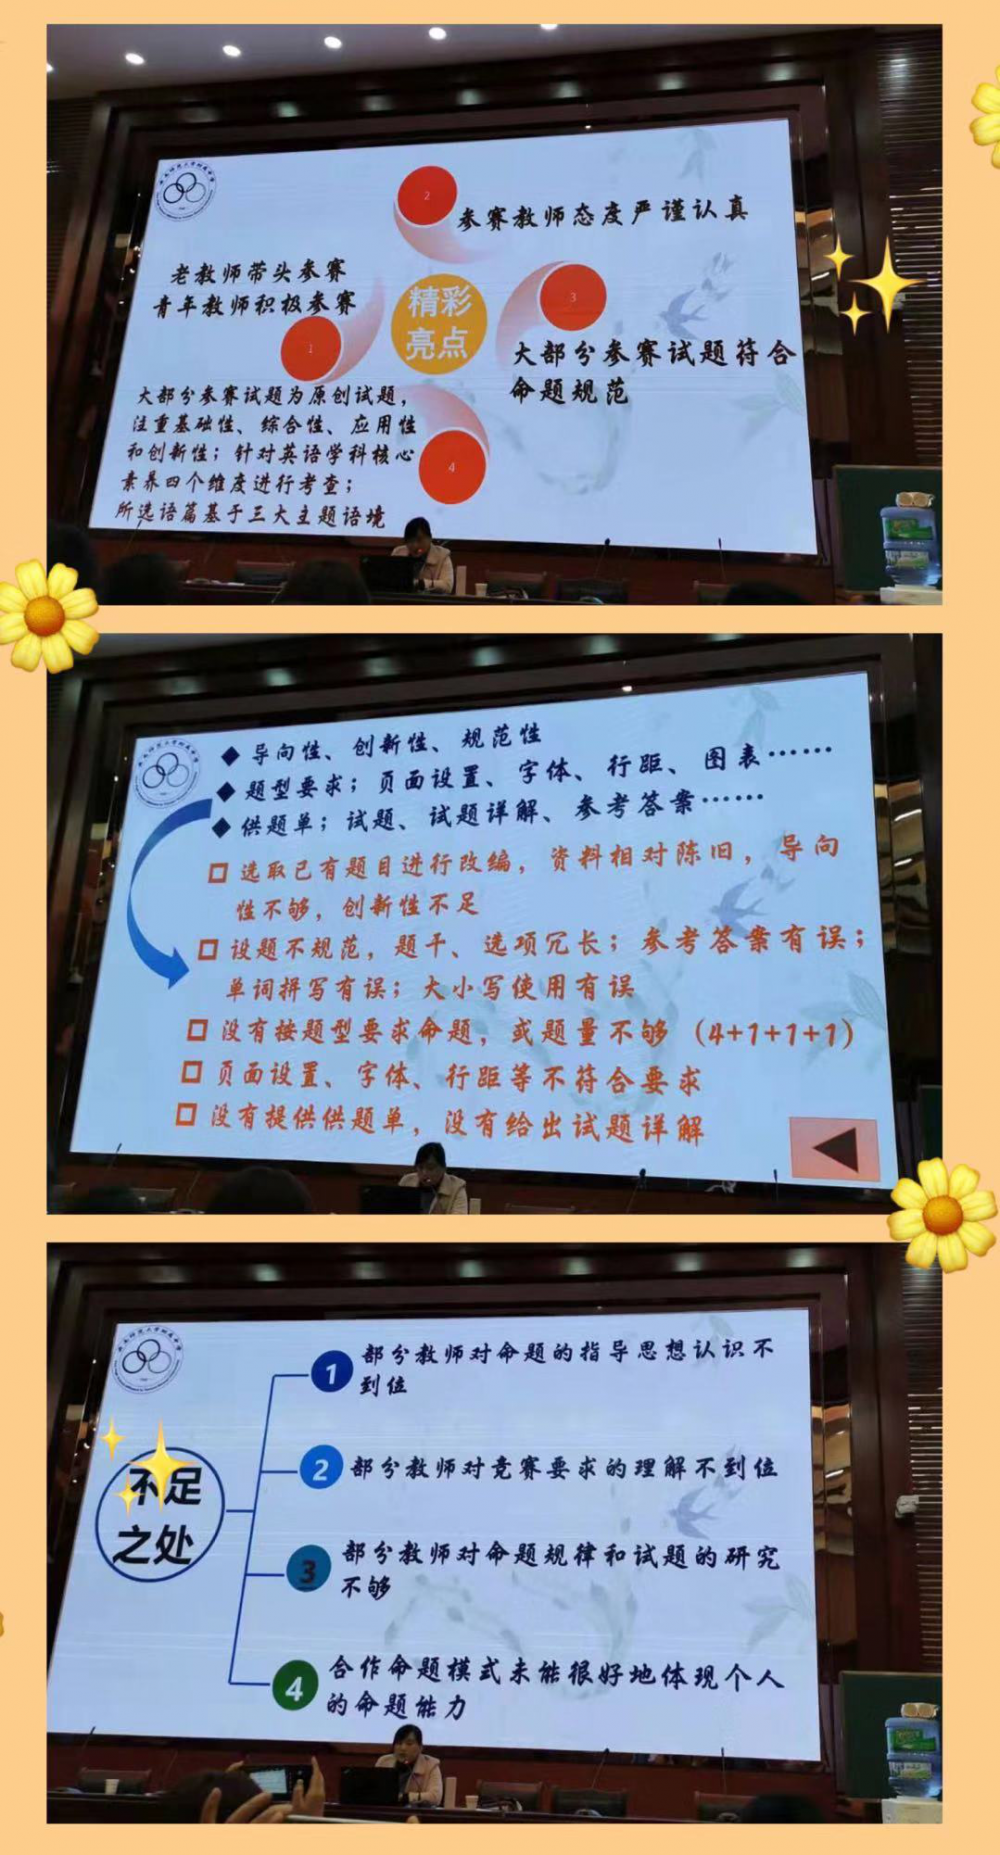 2
参赛教师态度严谨认真
老教师带头参赛
青年教师积极参赛
1
精彩
亮点
3
大部分参赛试题符合
命题规范
大部分参赛试题为原创试题，
注重基础性、综合性、应用性
和创新性；针对英语学科核心
素养四个维度进行考查；
所选语篇基于三大主题语境
4
◆ 导向性、创新性、规范性
◆ 题型要求；页面设置、字体、行距、图表……
◆ 供题单；试题、试题详解、参考答案……
选取已有题目进行改编，资料相对陈旧，导向
性不够，创新性不足
设题不规范，题干、选项冗长；参考答案有误；
单词拼写有误；大小写使用有误
没有按题型要求命题，或题量不够（4+1+1+1）
页面设置、字体、行距等不符合要求
没有提供供题单，没有给出试题详解
不足
之处
1
部分教师对命题的指导思想认识不
到位
2
部分教师对竞赛要求的理解不到位
3
部分教师对命题规律和试题的研究
不够
4
合作命题模式未能很好地体现个人
的命题能力